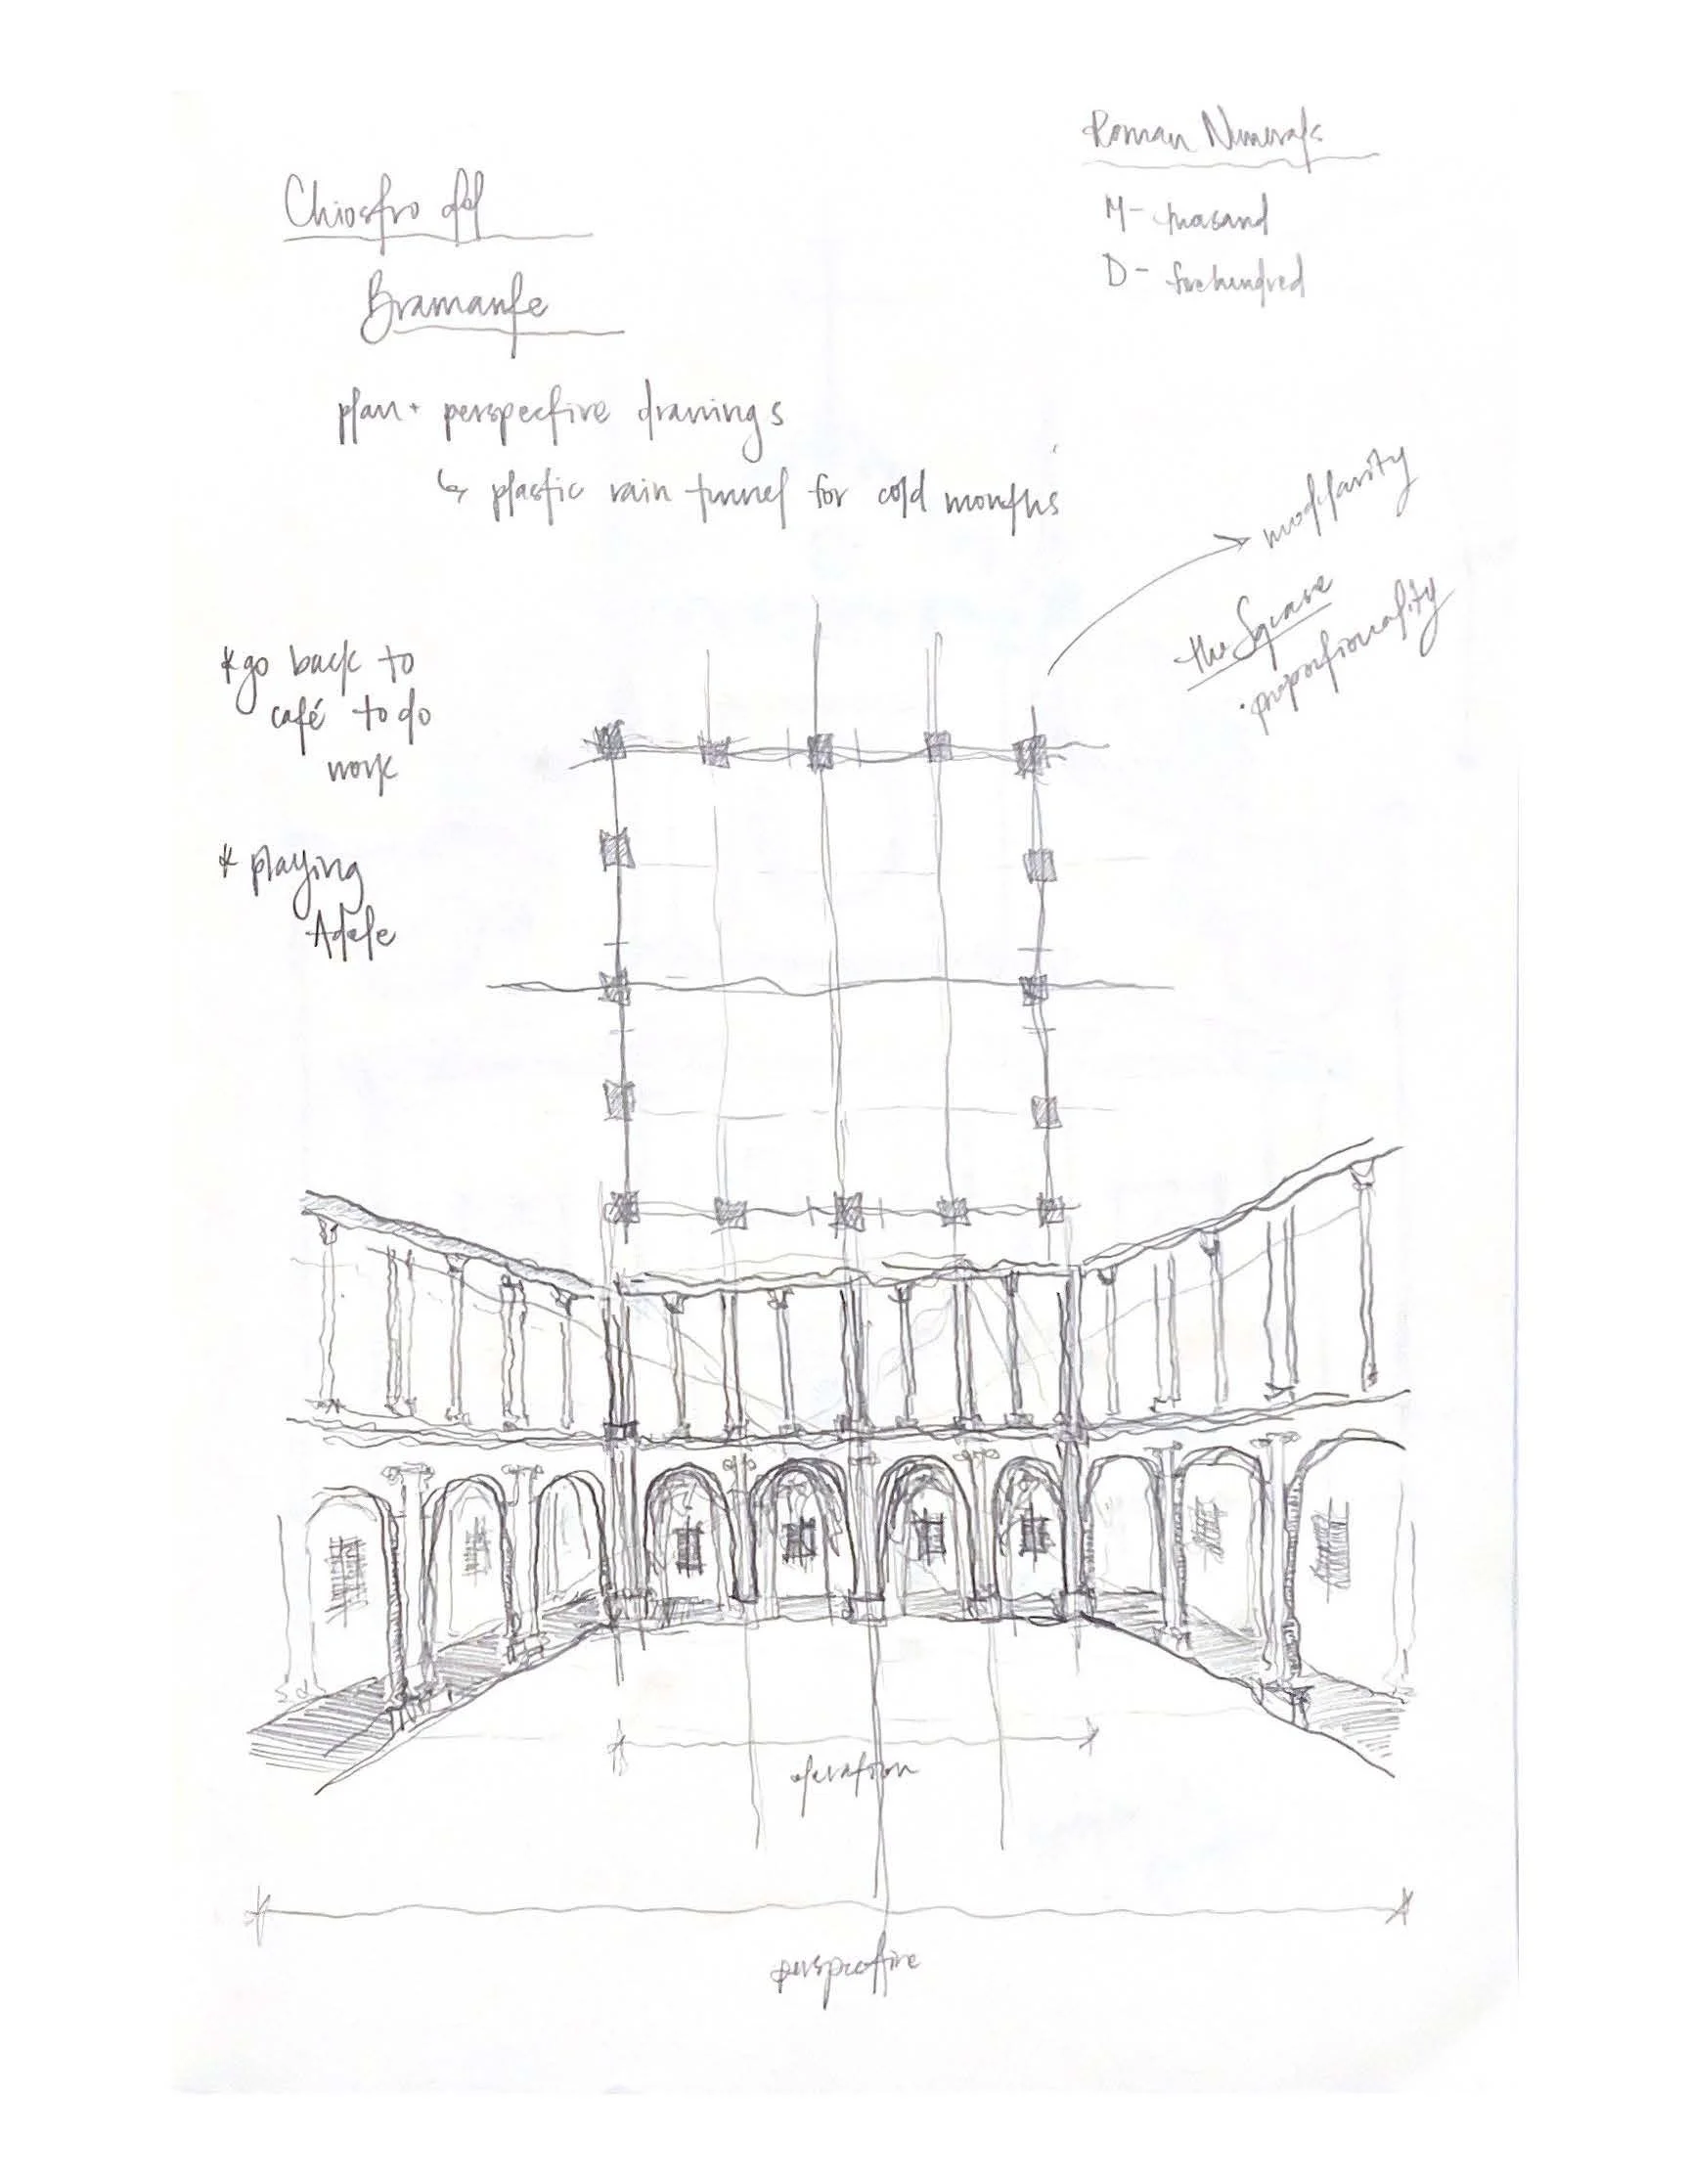 Roman Numerals
M - thousand
D - fivehundred
Chiostro del
Bramante
plan + perspective drawings
↳ plastic rain tunnel for cold months
→ modularity
the Square
• proportionality
* go back to
café to do
work
* playing
Adele
elevation
perspective